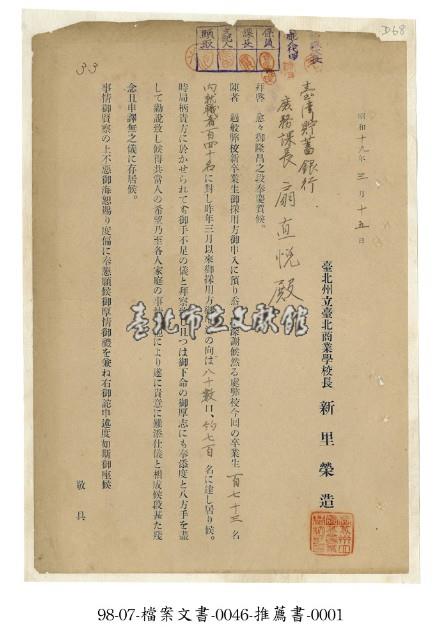 D68
33
昭和十九年三月十五日
臺北州立臺北商業學校長 新里榮造
臺灣貯蓄銀行
庶務課長 扇直悅殿
拜啓 愈々御隆昌之段奉慶賀候。
陳者 過般弊校新卒業生御採用方御申入に預り
深謝候然る處弊校今回の卒業生一百七十三名
內就職者一百四十名に對し昨年三月以來御採用方
の向は八十數口、約七百名に達し居り候。
時局柄貴方に於かせられても御手不足の儀と拜察
つは御下命の御厚志にも奉添度と八方手を盡
して勸說致し候得共當人の希望乃至各人家庭の事
により遂に貴意に難添仕儀と相成候段甚だ殘
念且申譯無之儀に存居候。
事情御賢察の上不惡御海恕賜り度偏に奉懇願候御厚情御禮を兼ね右御詫申述度如斯御座候
敬具
臺北市立文獻館
98-07-檔案文書-0046-推薦書-0001